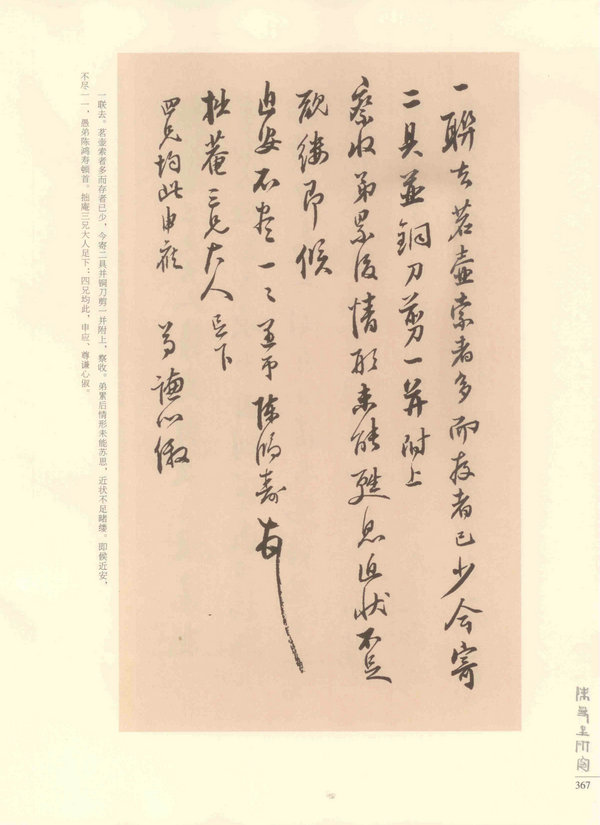 一聯去茗壺索者多而存者已少今寄
二具並銅刀剪一并附上
察收弟累後情形未能甦息近狀不足
覼縷即候
近安不盡一々愚弟陳鴻壽頓首
拙菴三兄大人足下
四兄均此申應
尊謙心俶
一联去。茗壶索者多而存者已少，今寄二具并铜刀剪一并附上，察收。弟累后情形未能苏思，近状不足睹缕。即候近安，
不尽一一，愚弟陈鸿寿顿首。拙庵三兄大人足下：四兄均此，申应、尊谦心俶。
367